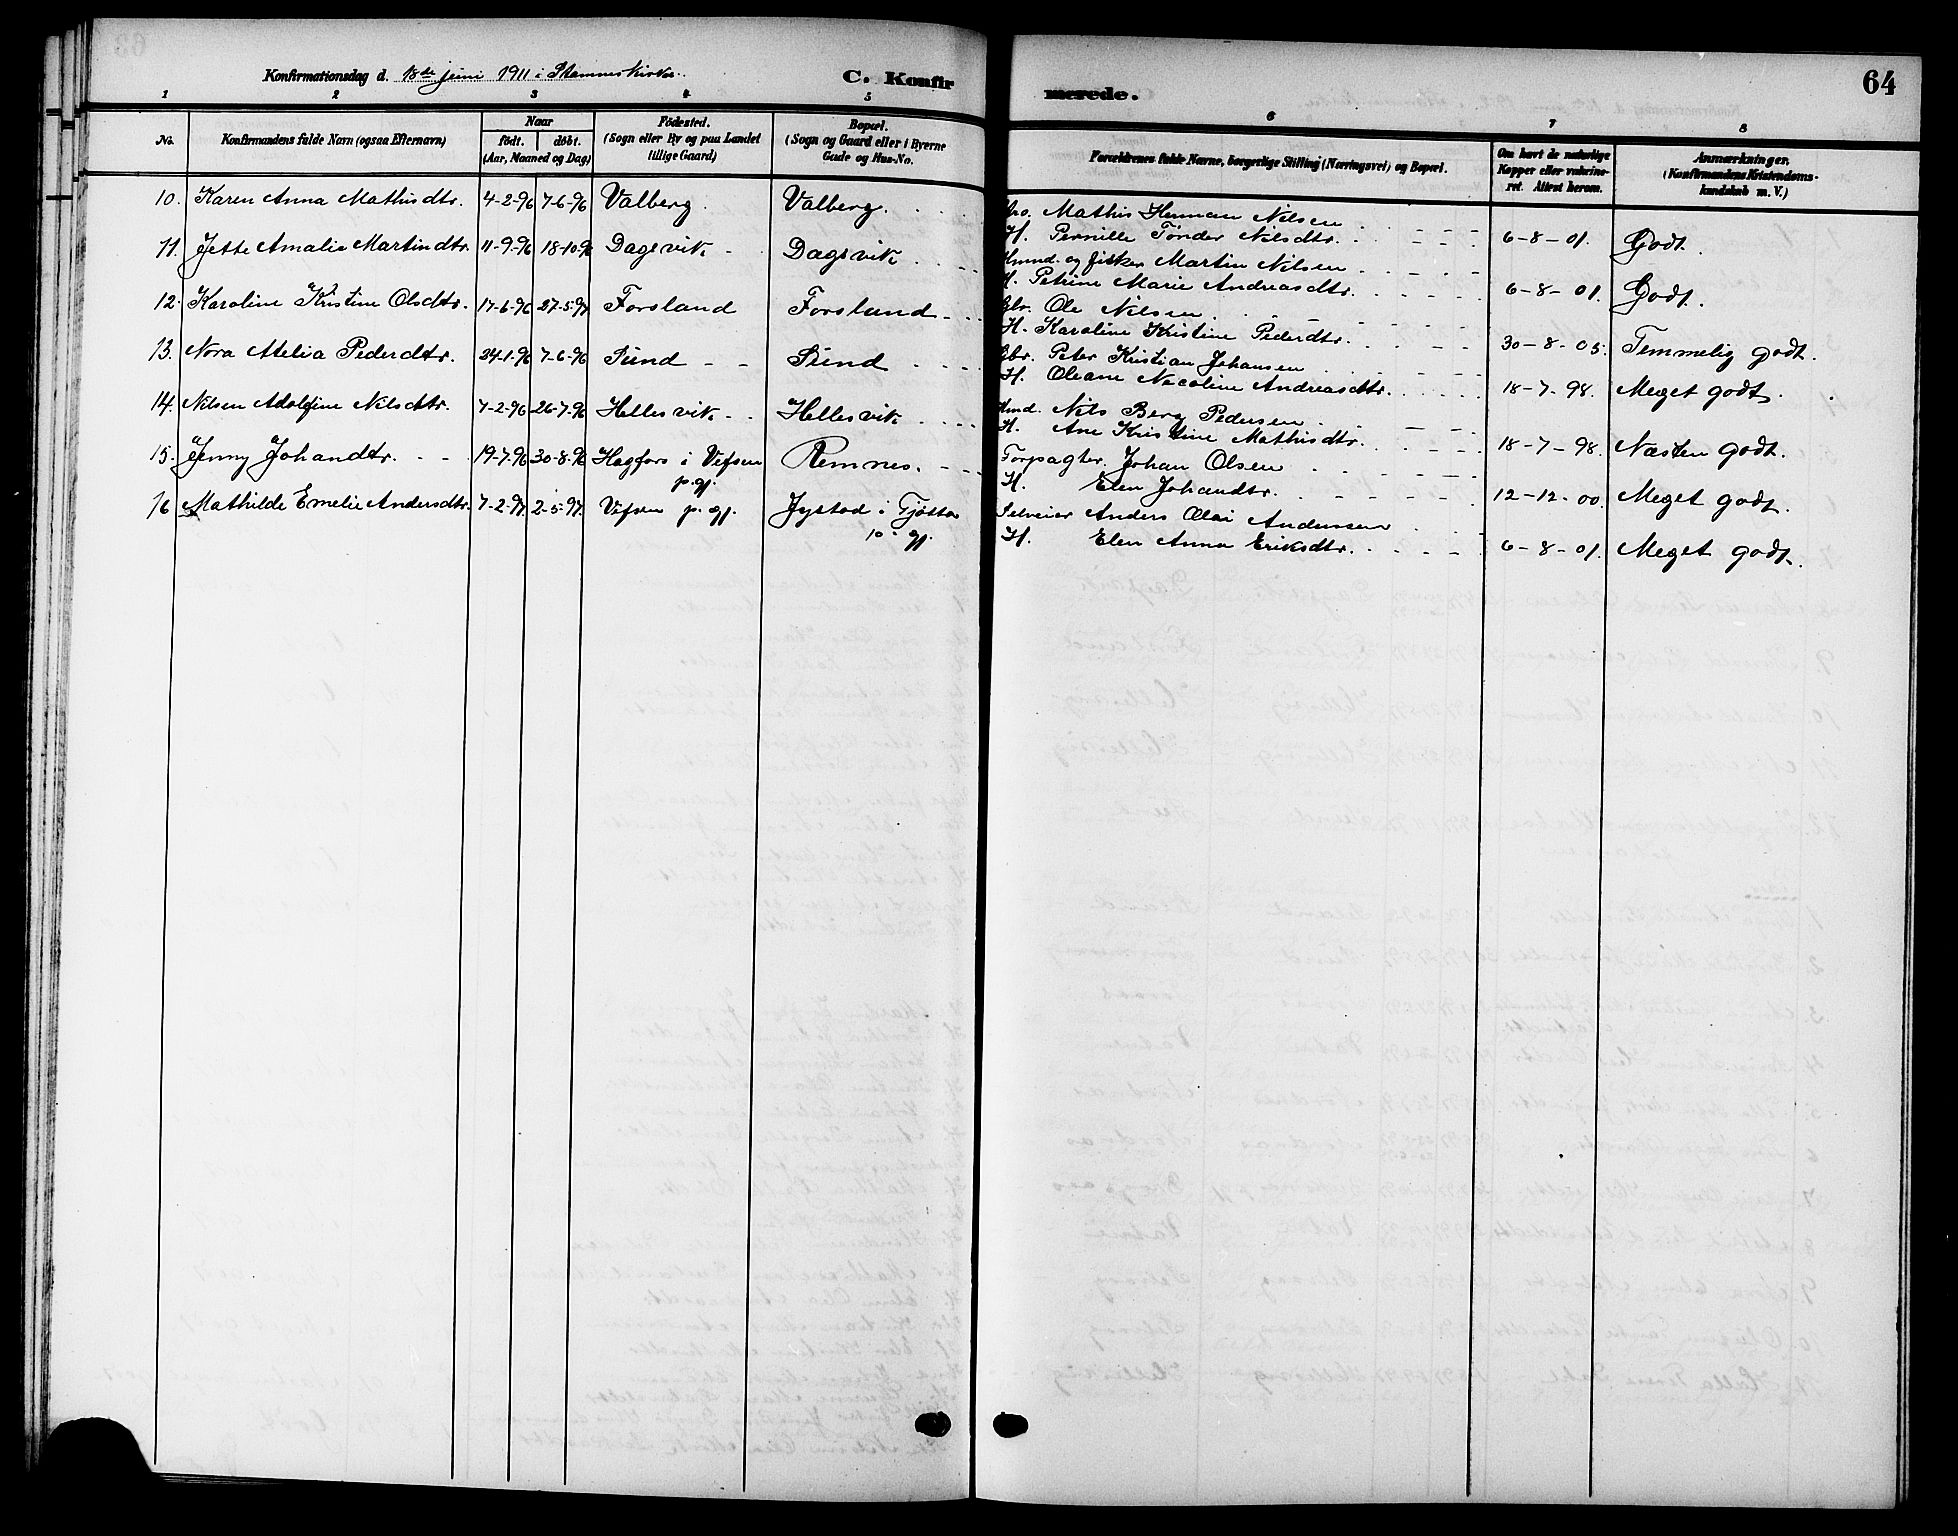 Konfirmationsdag d. 18de juni 1911 i Stamnes kirke. C. Konfirmerede. 64
1 2 3 4 5 6 7 8
No. Konfirmandens fulde Navn (ogsaa Efternavn) Naar født. døbt. (Aar, Maaned og Dag) Fødested. (Sogn eller By og paa Landet tillige Gaard) Bopæl. (Sogn og Gaard eller i Byerne Gade og Hus-No. Forældrenes fulde Navne, borgerlige Stilling (Næringsvei) og Bopæl. Om havt de naturlige Kopper eller vakcineret. Attest herom. Anmærkninger. (Konfirmandens Kristendomskundskab m. V.)
10. Karen Anna Mathisdtr. 4-2-96 7-6-96 Valberg. Valberg. Gro. Mathis Herman Nilsen
H. Pernille Tønder Nilsdtr. 6-8-01. Godt.
11. Jette Amalie Martindtr. 11-9-96 18-10-96 Dagsvik Dagsvik Hmnd. og fisker Martin Nilsen
H. Petrine Marie Andreasdtr. 6-8-01. Godt.
12. Karoline Kristine Olsdtr. 17-6-96 27-5-97 Forsland Forsland Gbr. Ole Nilsen
H. Karoline Kristine Pederdtr. 30-8-05. Temmelig godt.
13. Nora Atelia Pederdtr. 24-1-96 7-6-96 Sund Sund Gbr. Peter Kristian Johansen
H. Oleane Nicoline Andreasdtr. 18-7-98. Meget godt.
14. Nilsen Adolfine Nilsdtr. 7-2-96 26-7-96 Hellesvik Hellesvik Hmd. Nils Berg Pedersen
H. Ane Kristine Mathisdtr. 18-7-98. Næsten godt.
15. Jenny Johandtr. 19-7-96 30-8-96 Hagfors i Vefsen p.gj. Remnes. Forpagter. Johan Olsen
H. Elen Johandtr. 12-12-00 Meget godt.
16 Mathilde Emelie Andersdtr. 7-2-97. 2-5-97. Vefsen p. gj. Jystad i Tjøtta p. gj. Selveier Anders Olai Andersen
H. Elen Anna Eriksdtr. 6-8-01. Meget godt.